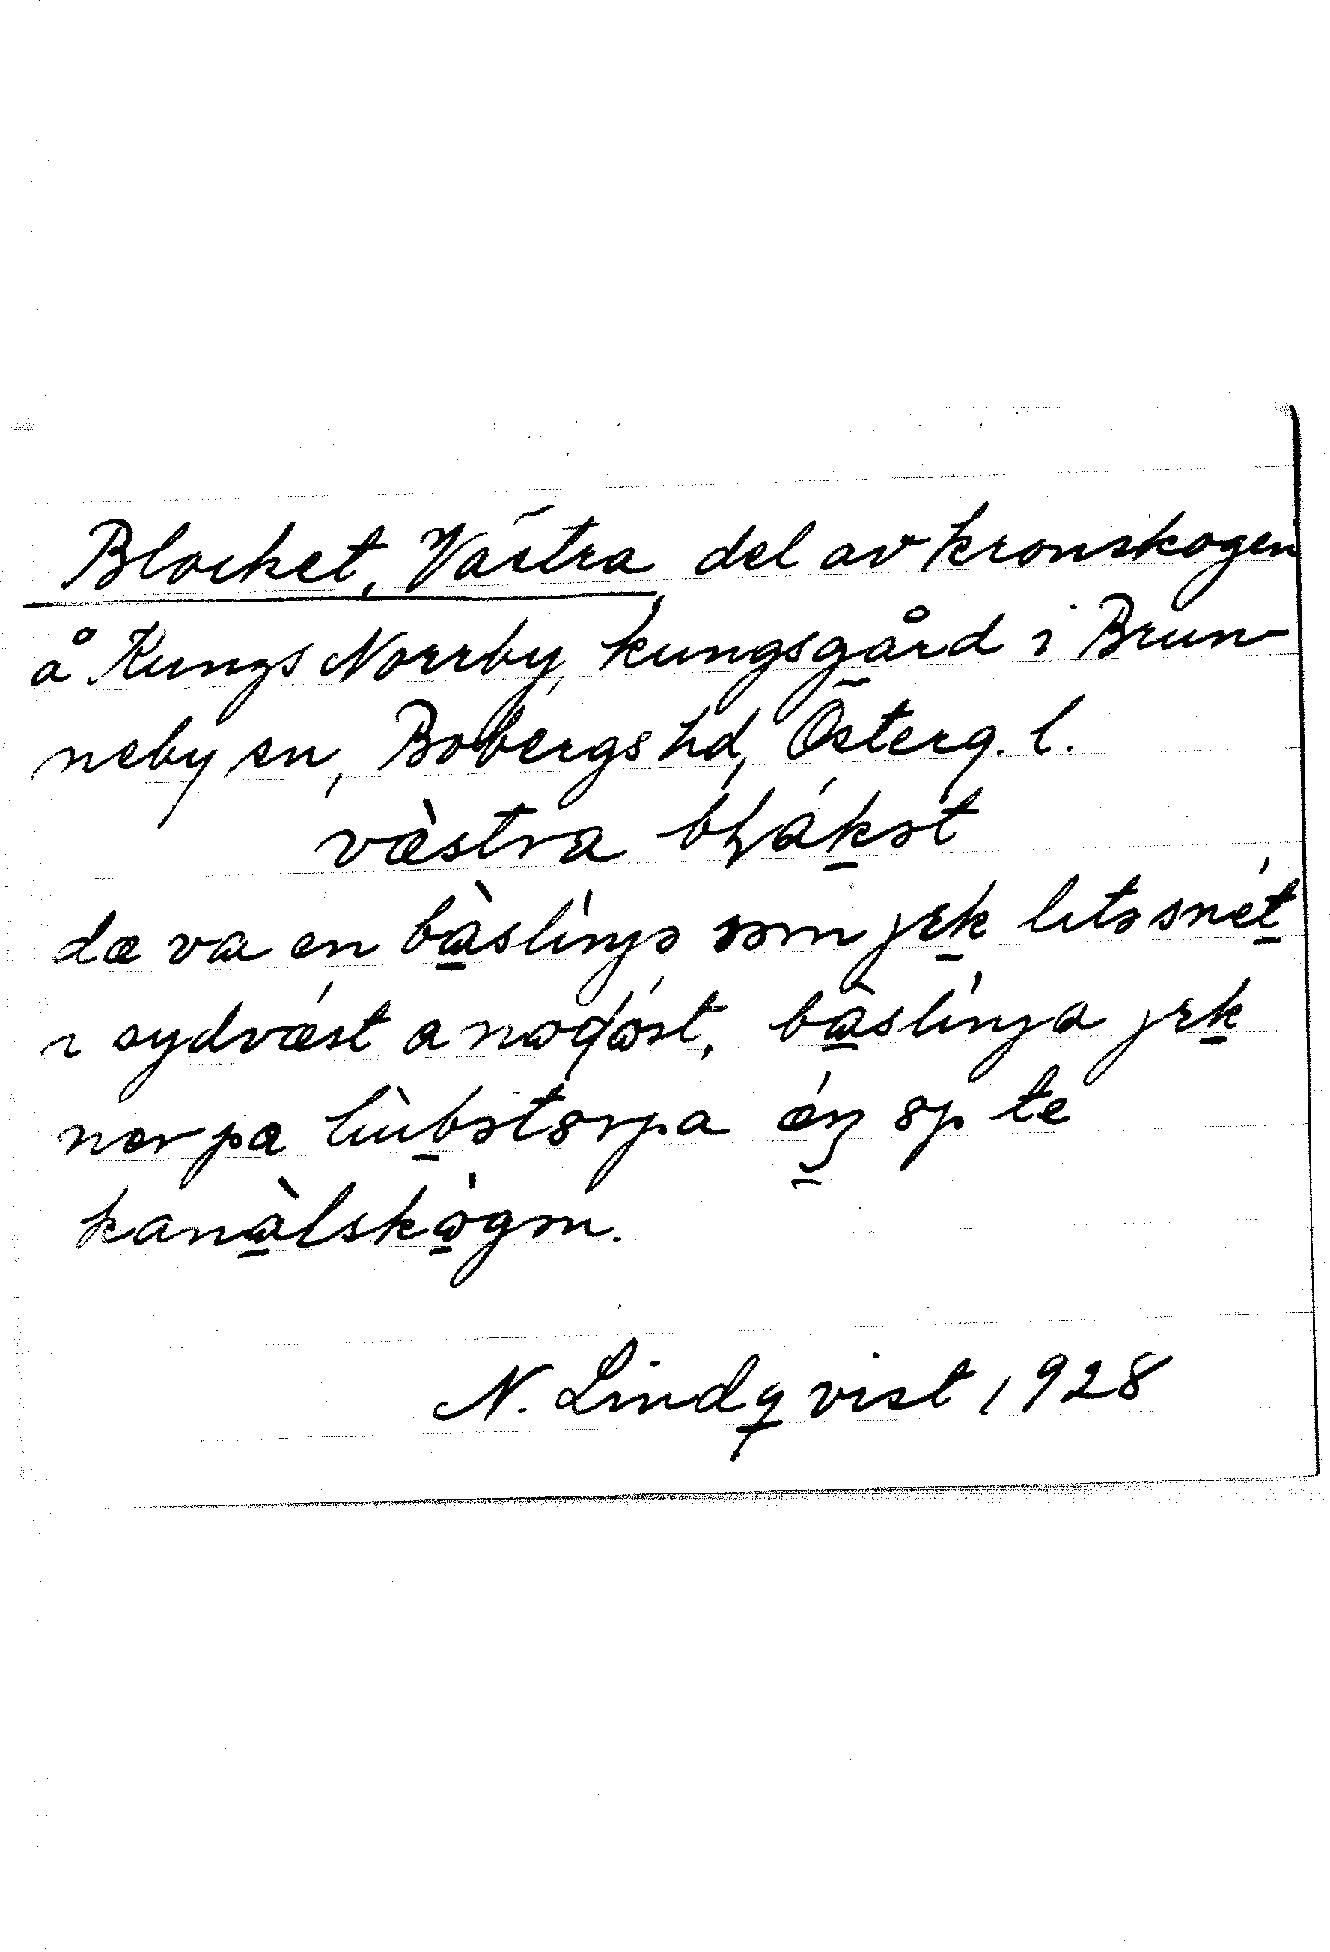 Blocket, Västra del av kronskogen
å Kungs Norrby, kungsgård i Brun-
neby sn, Bobergs hd, Österg. l.
væ̀stra bḷák̠ət
dæ va en bà̠slínjə səm jɛk̠ litə snét̠
ı sydvǽst a nɷḍɷ́st, bà̠slínja jɛk̠
nər pa lùb̠ətɵrpa ǽŋ ɵp te
kanà̠lskɷ̀gən.
N. Lindqvist 1928